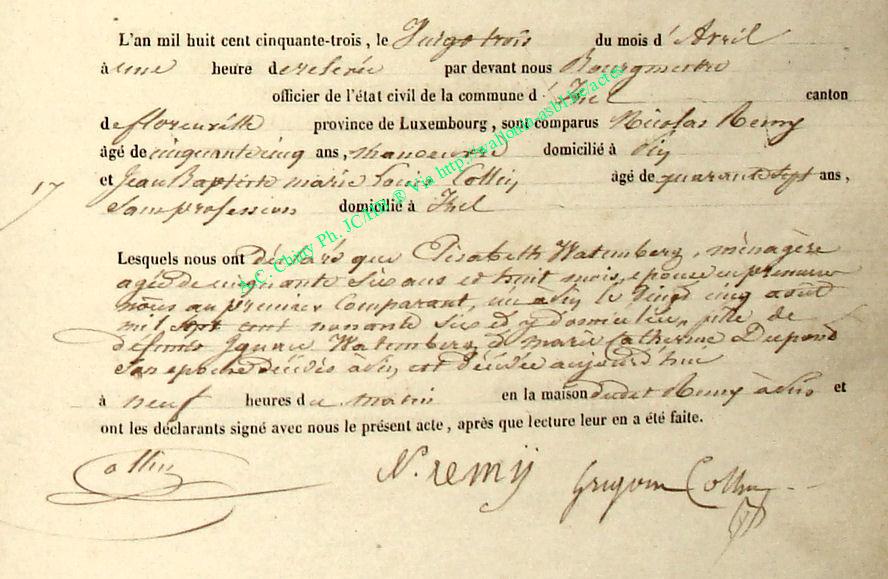 L'an mil huit cent cinquante-trois, le Vingt trois du mois d'Avril
à une heure de relevée par devant nous Bourgmestre
officier de l'état civil de la commune d'Izel canton
de florenville province de Luxembourg, sont comparus Nicolas Remy
âgé de cinquante cinq ans, manoeuvre domicilié à
17 et Jean Baptiste marie Louis Collin âgé de quarante sept ans,
Sans profession domicilié à Izel
Lesquels nous ont déclaré que Elisabeth Watemberg, ménagère
agée de cinquante Six ans et huit mois, epouse en premieres
nôces au premier Comparant, née le Vingt cinq août
mil sept cent nonante Six et y domiciliée, fille de
défunts Ignace Watemberg, & marie Catherine Dupond
Son epouse décédés est décédée aujourd'hui
à neuf heures du matin en la maison dudit Remy et
ont les déclarants signé avec nous le présent acte, après que lecture leur en a été faite.
Collin N. remy Collin
A.C. Chiny Ph. JC/HB ® Via http://wallonia-asbl.be/actes